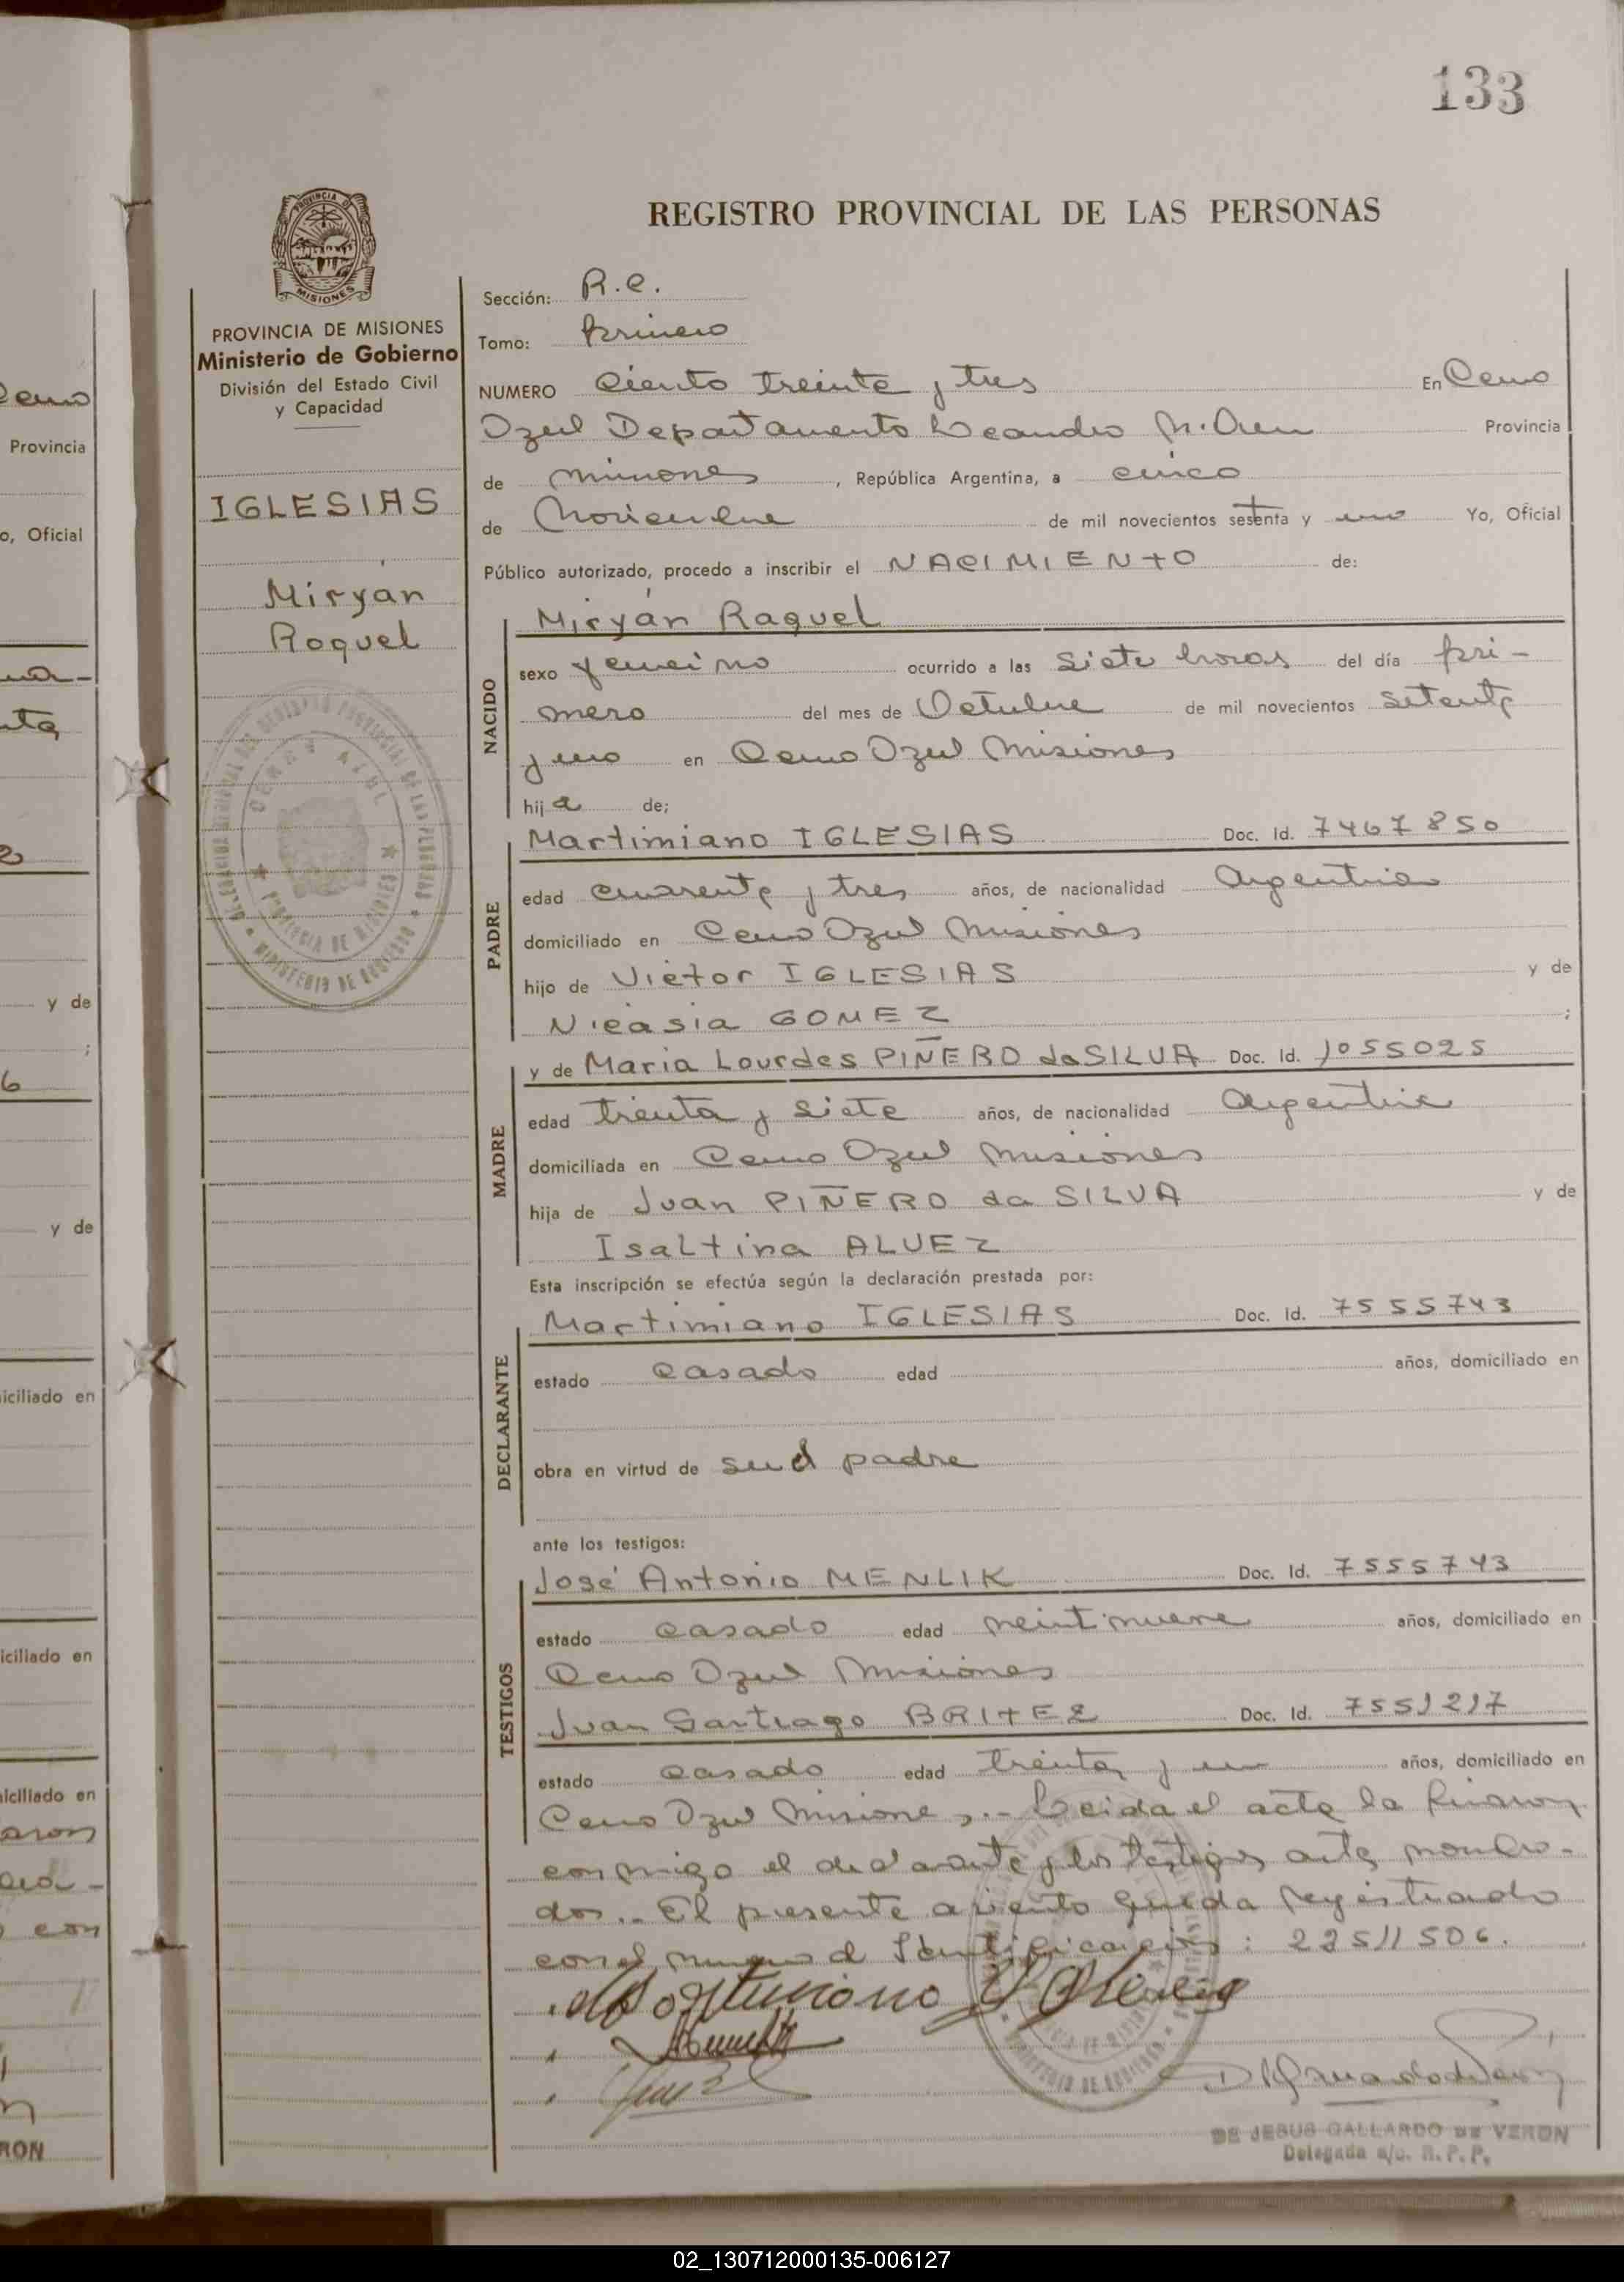 133
REGISTRO PROVINCIAL DE LAS PERSONAS
PROVINCIA DE MISIONES
Ministerio de Gobierno
División del Estado Civil
y Capacidad
IGLESIAS
Miryan
Raquel
Sección: R.C.
Tomo: Primero
NUMERO Ciento treinta y tres En Cerro
Azul Departamento Leandro N. Alem Provincia
de Misiones, República Argentina, a cinco
de Noviembre de mil novecientos setenta y uno Yo, Oficial
Público autorizado, procedo a inscribir el NACIMIENTO de:
NACIDO
Miryan Raquel
sexo femenino ocurrido a las siete horas del día pri-
mero del mes de Octubre de mil novecientos setenta
y uno en Cerro Azul Misiones
hija de;
PADRE
Martimiano IGLESIAS Doc. Id. 7467850
edad cuarenta y tres años, de nacionalidad Argentina
domiciliado en Cerro Azul Misiones
hijo de Victor IGLESIAS y de
Nicasia GOMEZ ;
MADRE
y de Maria Lourdes PIÑERO da SILVA Doc. Id. 1055025
edad treinta y siete años, de nacionalidad Argentina
domiciliada en Cerro Azul Misiones
hija de Juan PIÑERO da SILVA y de
Isaltina ALVEZ
Esta inscripción se efectúa según la declaración prestada por:
DECLARANTE
Martimiano IGLESIAS Doc. Id. 7555743
estado casado edad años, domiciliado en
obra en virtud de padre
ante los testigos:
TESTIGOS
José Antonio MENLIK Doc. Id. 7555743
estado casado edad veintinueve años, domiciliado en
Cerro Azul Misiones
Juan Santiago BRITEZ Doc. Id. 7551217
estado casado edad treinta y un años, domiciliado en
Cerro Azul Misiones,.- Leida el acta la firman
conmigo el declarante y los testigos antes nombra-
dos.. El presente asiento queda registrado
con el numero d Identificación: 22511506.
Martimiano Iglesias
DE JESUS GALLARDO DE VERON
Delegada a/c. R.P.P.
02_130712000135-006127